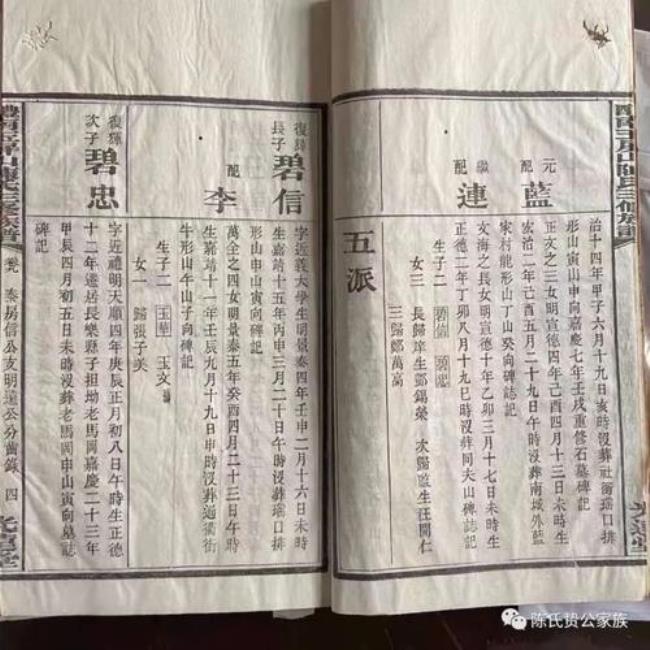 元配 藍
繼配 連
治十四年甲子六月十九日亥時沒葬社衝瑶口排
形山寅山申向嘉慶七年壬戌重修石墓碑記
正文之三女明宣德四年己酉四月十三日未時生
宏治二年己酉五月二十九日午時沒葬南城外藍
家村龍形山丁山癸向碑誌記
文海之長女明宣德十年乙卯三月十七日未時生
正德二年丁卯八月十九巳時沒葬同夫山碑誌記
生子二 碧信 碧忠
女三 長歸庠生鄧錫榮 次歸監生汪開仁
三歸鄭萬高
五派
復輝長子 碧信
配 李
字近義大學生明景泰四年壬申二月十六日未時
生嘉靖十五年丙申三月二十日午時沒葬瑶口排
形山申山寅向碑記
萬全之四女明景泰五年癸酉四月二十三日午時
生嘉靖十一年壬辰九月十九日申時沒葬通衢街
牛形山午山子向碑記
生子二 玉華 玉文
女一 歸張子美
復輝次子 碧忠
字近禮明天順四年庚辰正月初八日午時生正德
十二年遷居長樂縣子担坳老馬岡嘉慶二十三年
甲辰四月初五日未時沒葬老馬岡申山寅向墓誌
碑記
泰房信公支明遠公分齒錄 四
陈氏贽公家族